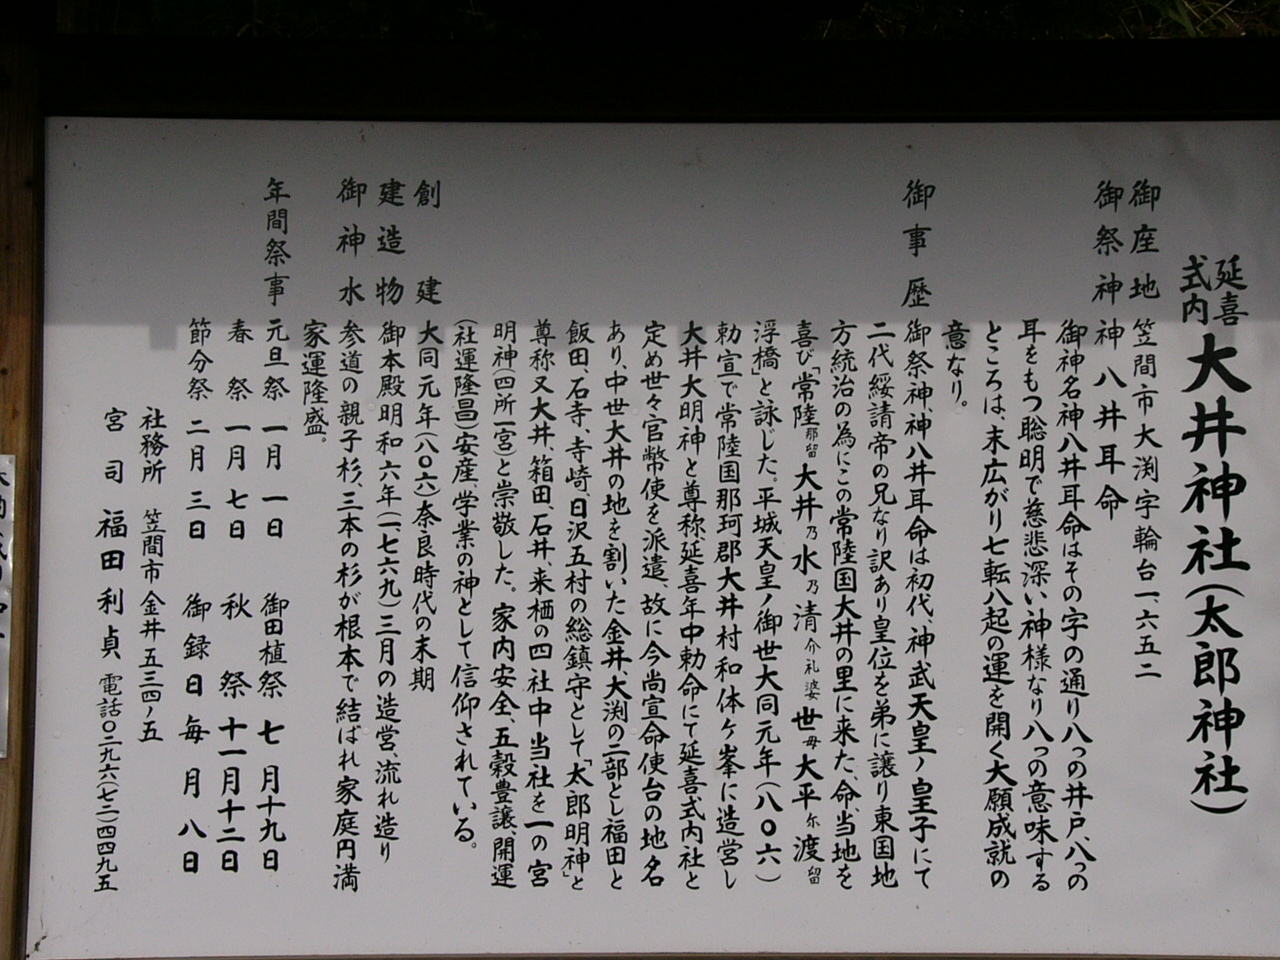 延喜式内 大井神社(太郎神社)
御座地 笠間市大渕字輪台一、六五二
御祭神 神八井耳命
御神名神八井耳命はその字の通り八つの井戸、八つの
耳をもつ聡明で慈悲深い神様なり八つの意味する
ところは、末広がり七転八起の運を開く大願成就の
意なり。
御事歴 御祭神、神八井耳命は初代、神武天皇ノ皇子にて
二代綏請帝の兄なり訳あり皇位を弟に譲り東国地
方統治の為にこの常陸国大井の里に来た、命、当地を
喜び「常陸那留大井乃水乃清介礼婆世毎大平尓渡留
浮橋」と詠じた。平城天皇ノ御世大同元年(八〇六)
勅宣で常陸国那珂郡大井村和体ケ峯に造営し
大井大明神と尊称、延喜年中勅命にて延喜式内社と
定め世々官幣使を派遣、故に今尚宣命使台の地名
あり、中世大井の地を割いた金井、大渕の二部とし福田と
飯田、石寺、寺崎、日沢五村の総鎮守として「太郎明神」と
尊称又大井、箱田、石井、来栖の四社中当社を一の宮
明神(四所一宮)と崇敬した。家内安全、五穀豊譲、開運
(社運隆昌)安産、学業の神として信仰されている。
創建 大同元年(八〇六)奈良時代の末期
建造物 御本殿明和六年(一、七六九)三月の造営、流れ造り
御神水 参道の親子杉、三本の杉が根本で結ばれ家庭円満
家運隆盛。
年間祭事 元旦祭 一月一日 御田植祭 七月十九日
春祭 一月七日 秋祭 十一月十二日
節分祭 二月三日 御録日毎月八日
社務所 笠間市金井五三四ノ五
宮司 福田利貞 電話〇二九六(七二)四四九五